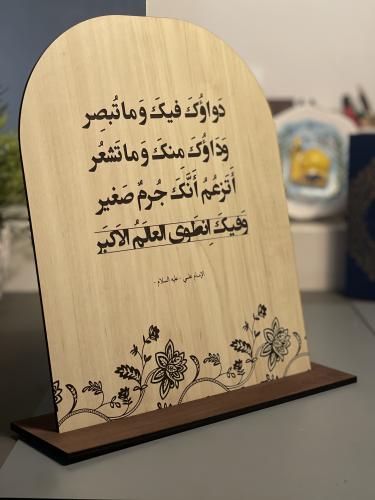 دَواؤُكَ فيكَ وَما تُبصِر
وَدَاؤُكَ منكَ وَما تَشعُر
أَتَزعُمُ أَنَّكَ جُرمٌ صَغير
وَفيكَ انطَوى العالَمُ الأكبَر
- الإمام علي - عليه السلام